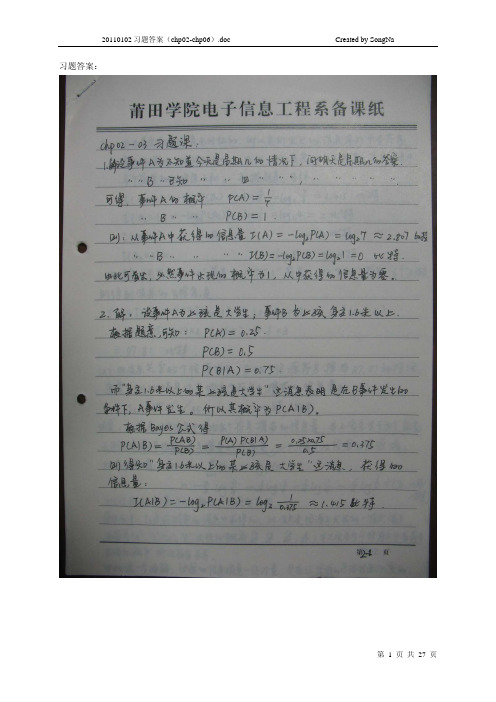 20110102 习题答案（chp02-chp06）.doc Created by SongNa
习题答案：
莆田学院电子信息工程系备课纸
chp02-03 习题课.
1. 事件A为不知道今天是星期几的情况下，问明天是星期几的答案.
〃 〃 B 〃 已知 〃 〃 〃 〃 〃 〃, 〃 〃 〃 〃 〃.
可得 事件A的概率 P(A)= 1/7
〃 B 〃 〃 P(B)= 1.
则：从事件A中获得的信息量 I(A) = -log₂P(A) = log₂7 ≈ 2.807 比特
〃 〃 B 〃 〃 〃 〃 I(B)=-log₂P(B)=log₂1=0 比特.
由此可看出，必然事件出现的概率为1，从中获得的信息量为零。
2. 解：设事件A为女孩是大学生；事件B为女孩身高1.6米以上.
根据题意，可知： P(A)= 0.25
P(B)= 0.5
P(B|A)= 0.75.
而“身高1.6米以上的某女孩是大学生”这消息表明是在B事件发生的
条件下，A事件发生。所以其概率为P(A|B)。
根据Bayes公式得
P(A|B)= P(AB)/P(B) = P(A)P(B|A)/P(B) = 0.25×0.75/0.5 =0.375
则得知“身高1.6米以上的某女孩是大学生”这消息，获得的
信息量：
I(A|B)=-log₂P(A|B)= log₂ 1/0.375 ≈1.415 比特.
第 1 页 共 27 页